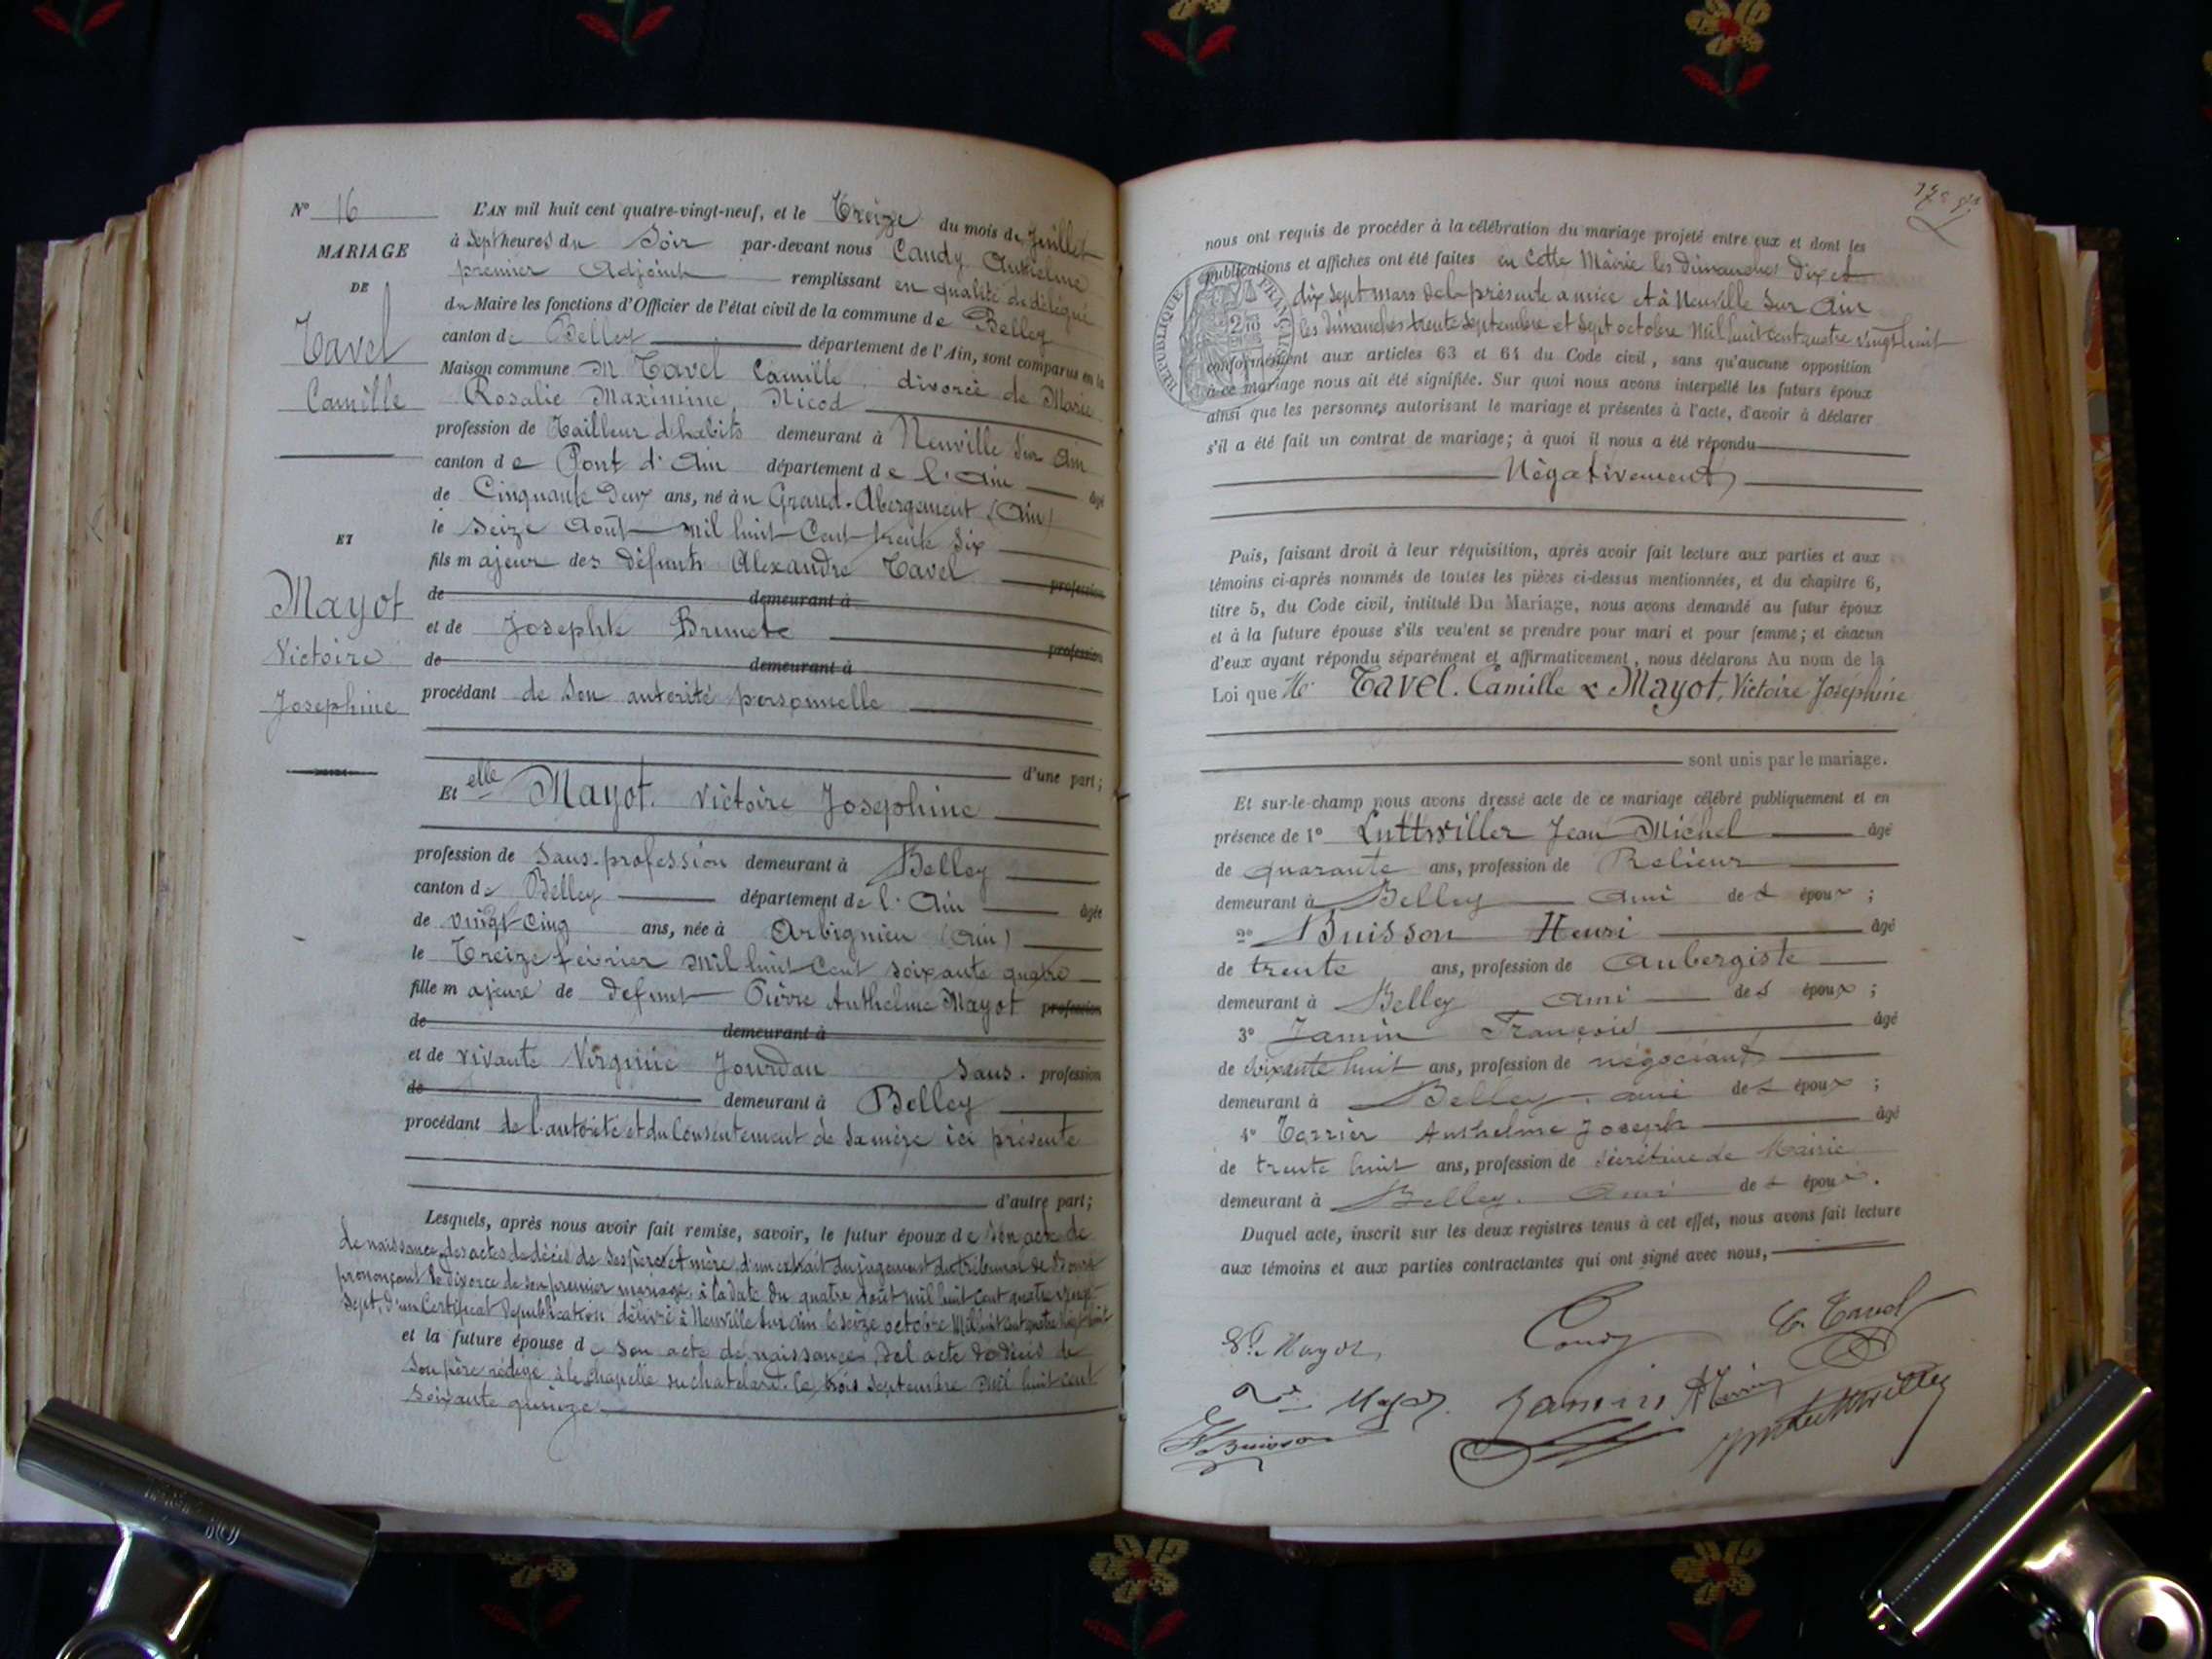 N° 16
MARIAGE
DE
Tavel
Camille
ET
Mayot
Victoire
Josephine
L'AN mil huit cent quatre-vingt-neuf, et le Treize du mois de Juillet
à Sept heures du Soir par-devant nous Caudy Anthelme
premier Adjoint remplissant en qualité de délégué
du Maire les fonctions d'Officier de l'état civil de la commune de Belley
canton de Belley département de l'Ain, sont comparus en la
Maison commune M Tavel Camille, divorcé de Marie
Rosalie Maximine Nicod
profession de Tailleur d'habits demeurant à Neuville Sur Ain
canton de Pont d'Ain département de l'Ain âgé
de Cinquante Deux ans, né au Grand-Abergement (Ain)
le Seize Août Mil huit Cent trente Six
fils majeur des défunts Alexandre Tavel profession
de demeurant à
et de Josephte Brunet profession
de demeurant à
procédant de Son autorité personnelle
d'une part;
Et elle Mayot. Victoire Josephine
profession de Sans-profession demeurant à Belley
canton de Belley département de l'Ain âgée
de vingt-cinq ans, née à Arbignieu (Ain)
le Treize février Mil huit Cent soixante quatre
fille majeure de defunt Pierre Anthelme Mayot profession
de demeurant à
et de vivante Virginie Jourdan Sans. profession
de demeurant à Belley
procédant de l'autorité et du Consentement de Sa mère ici présente
d'autre part;
Lesquels, après nous avoir fait remise, savoir, le futur époux de Son acte de
de naissance, des actes de décès de Ses père et mère, d'un extrait du jugement du tribunal de Bourg
prononçant le divorce de son premier mariage, à la date du quatre août mil huit cent quatre vingt
Sept, d'un Certificat de publication délivré à Neuville Sur Ain le seize octobre Mil huit cent quatre vingt huit
et la future épouse de Son acte de naissance, Del acte de décès de
Son père rédigé à la chapelle du chatelard le trois Septembre Mil huit cent
Soixante quinze.
nous ont requis de procéder à la célébration du mariage projeté entre eux et dont les
publications et affiches ont été faites en Cette Mairie les dimanches dix et
dix Sept Mars de la présente année et à Neuville Sur Ain
les dimanches trente Septembre et Sept octobre Mil huit Cent quatre vingt huit
conformément aux articles 63 et 64 du Code civil, sans qu'aucune opposition
à ce mariage nous ait été signifiée. Sur quoi nous avons interpellé les futurs époux
ainsi que les personnes autorisant le mariage et présentes à l'acte, d'avoir à déclarer
s'il a été fait un contrat de mariage; à quoi il nous a été répondu
Négativement
RÉPUBLIQUE FRANÇAISE
Puis, faisant droit à leur réquisition, après avoir fait lecture aux parties et aux
témoins ci-après nommés de toutes les pièces ci-dessus mentionnées, et du chapitre 6,
titre 5, du Code civil, intitulé Du Mariage, nous avons demandé au futur époux
et à la future épouse s'ils veulent se prendre pour mari et pour femme; et chacun
d'eux ayant répondu séparément et affirmativement, nous déclarons Au nom de la
Loi que Mr Tavel. Camille & Mayot, Victoire Joséphine
sont unis par le mariage.
Et sur-le-champ nous avons dressé acte de ce mariage célébré publiquement et en
présence de 1° Luttwiller Jean Michel âgé
de quarante ans, profession de Relieur
demeurant à Belley ami des époux;
2° Buisson Henri âgé
de trente ans, profession de Aubergiste
demeurant à Belley ami des époux;
3° Jamin François âgé
de soixante huit ans, profession de négociant
demeurant à Belley, ami des époux;
4° Terrier Anthelme Joseph âgé
de trente huit ans, profession de Secrétaire de Mairie
demeurant à Belley. Ami des époux.
Duquel acte, inscrit sur les deux registres tenus à cet effet, nous avons fait lecture
aux témoins et aux parties contractantes qui ont signé avec nous,
Mayot Caudy C. Tavel
Jamin
H Buisson